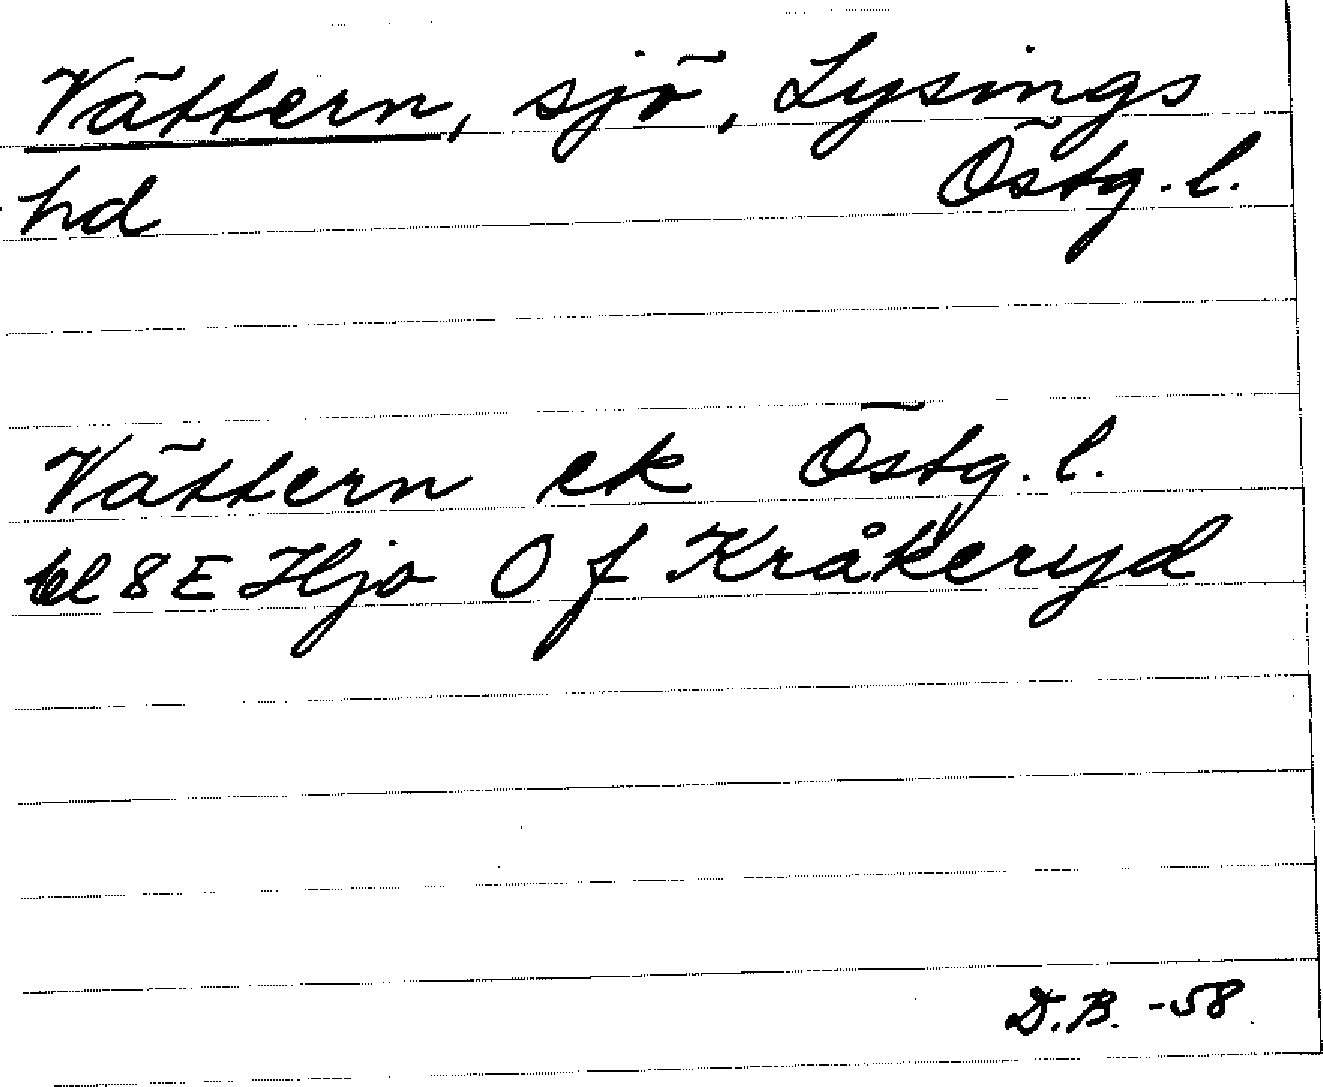 Vättern, sjö, Lysings
hd Östg. l.
Vättern ek Östg. l.
bl 8 E Hjo O f Kråkeryd
D.B. -58